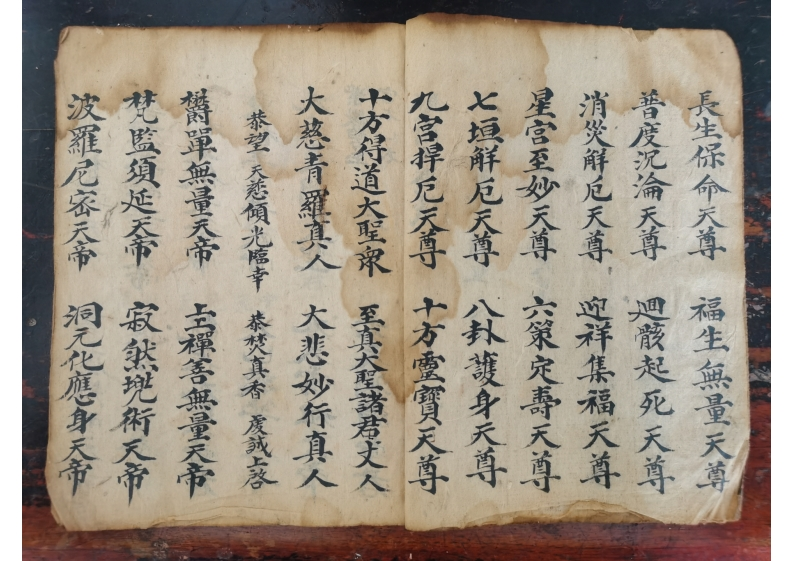 長生保命天尊 福生無量天尊
普度沉淪天尊 迴骸起死天尊
消災解厄天尊 迎祥集福天尊
星宮至妙天尊 六筞定壽天尊
七垣解厄天尊 八卦護身天尊
九宮捍厄天尊 十方靈寶天尊
十方得道大聖衆 至真大聖諸君丈人
大慈青羅真人 大悲妙行真人
恭望 天慈傾光臨幸 恭焚真香 虔誠上啓
欝單無量天帝 上上禪善無量天帝
梵監須延天帝 寂然兠術天帝
波羅尼密天帝 洞元化應身天帝